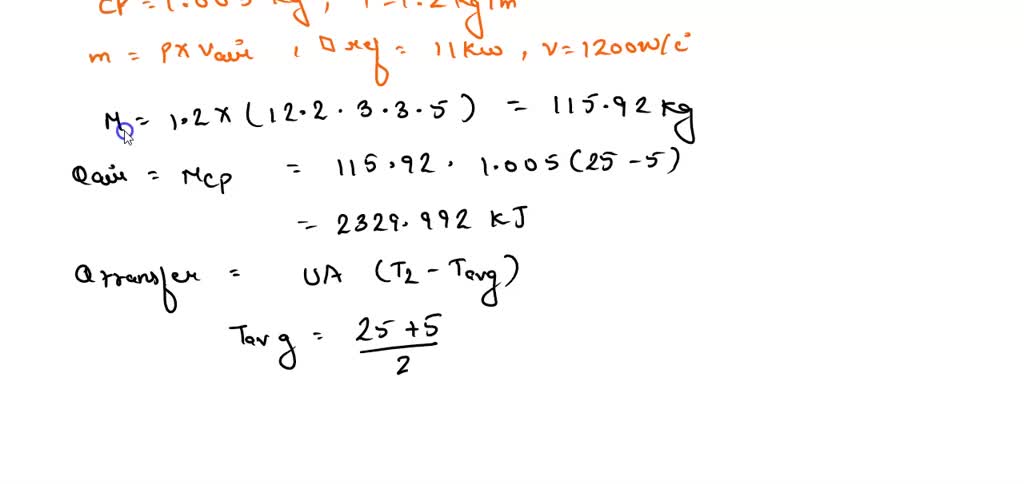 Cp = 1.005 kg, 1.2 kg/m
m = P x Vair , ☐ ref = 11 Kw , v = 1200 W/c°
M = 1.2 x (12.2 . 3 . 3.5) = 115.92 kg
Qair = Mcp = 115.92 . 1.005 (25 - 5)
= 2329.992 KJ
Qtransfer = UA (T2 - Tavg)
Tavg = 25 + 5 / 2